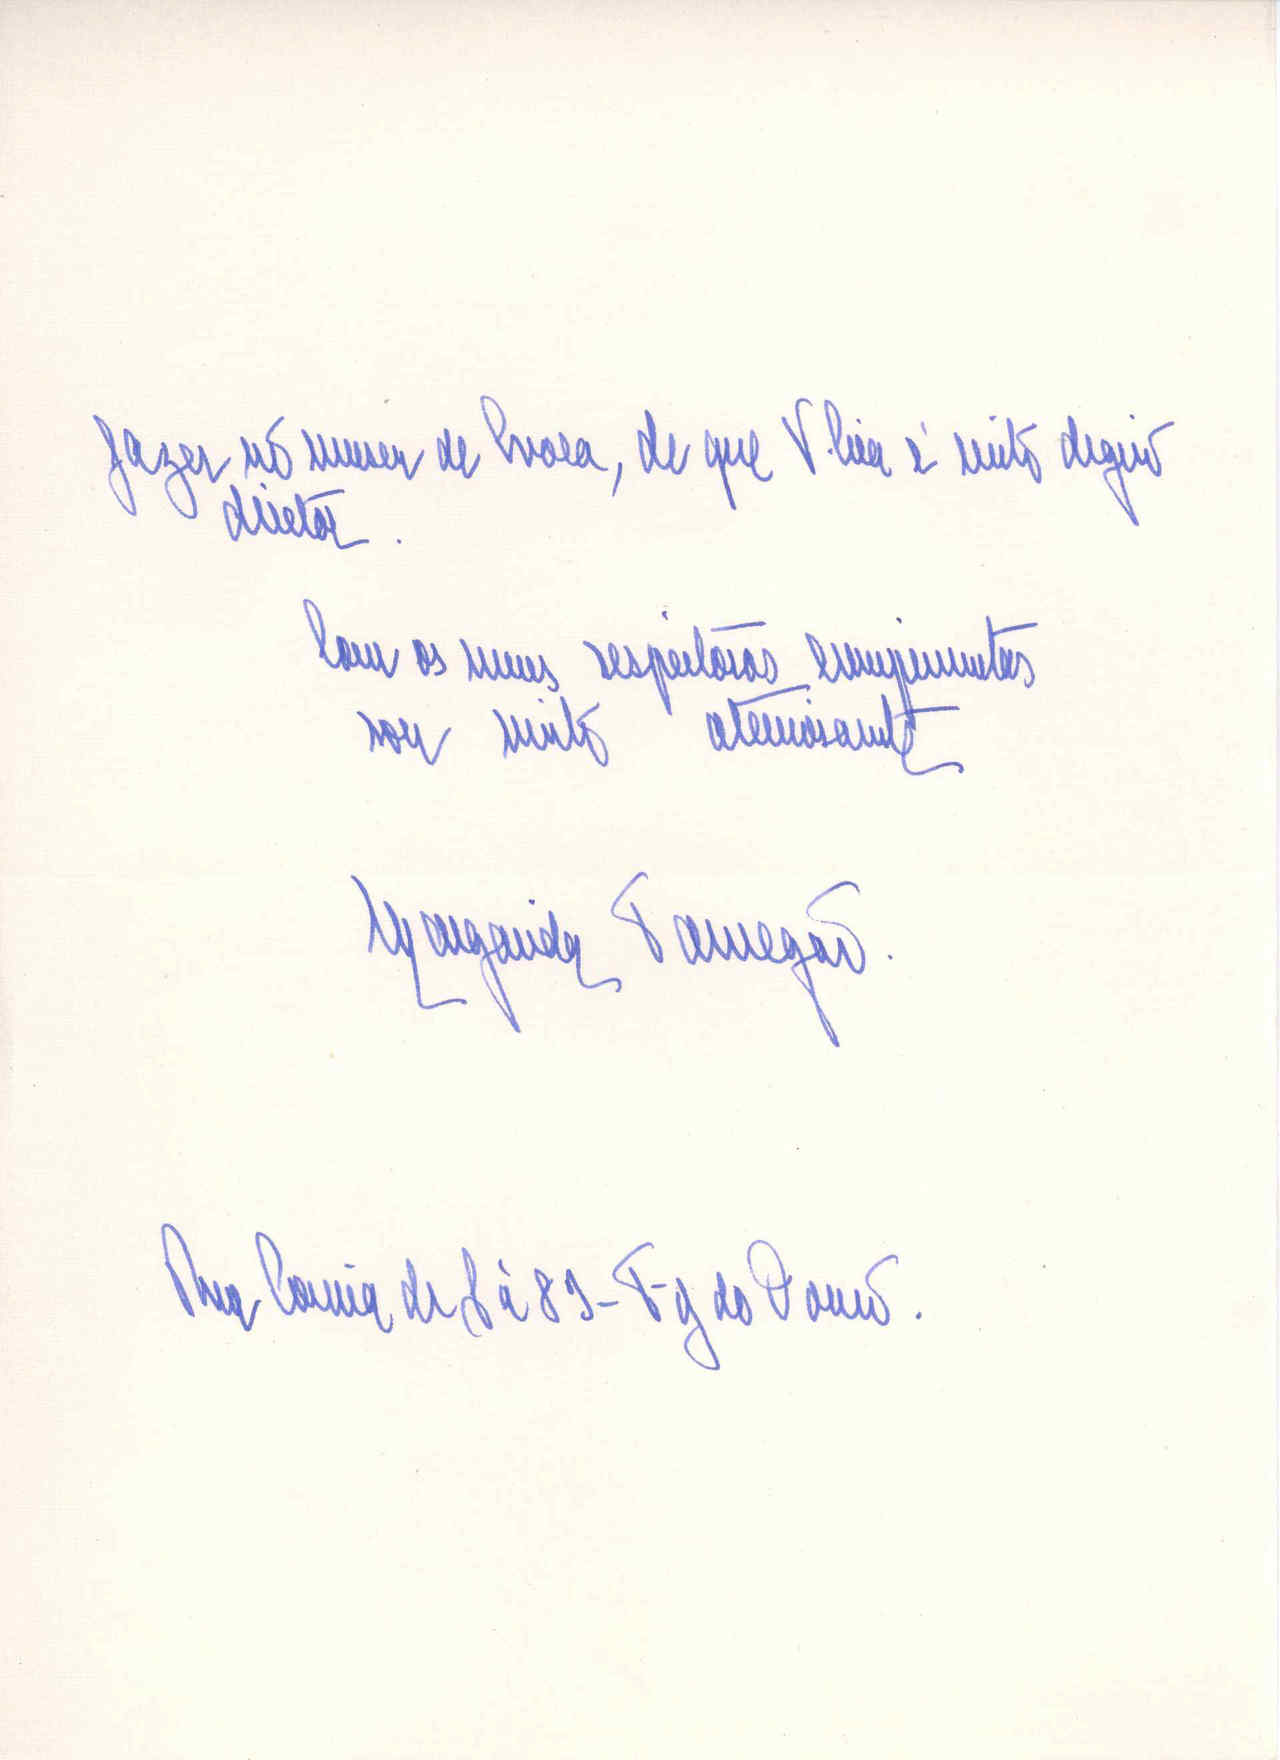 fazer no museu de Évora, de que V. Excia é muito digno
diretor.
Com os meus respeitosos cumprimentos
sou muito atenciosamente
Margarida Tamegão.
Rua Correia de Sá 89 - F-g do Douro.